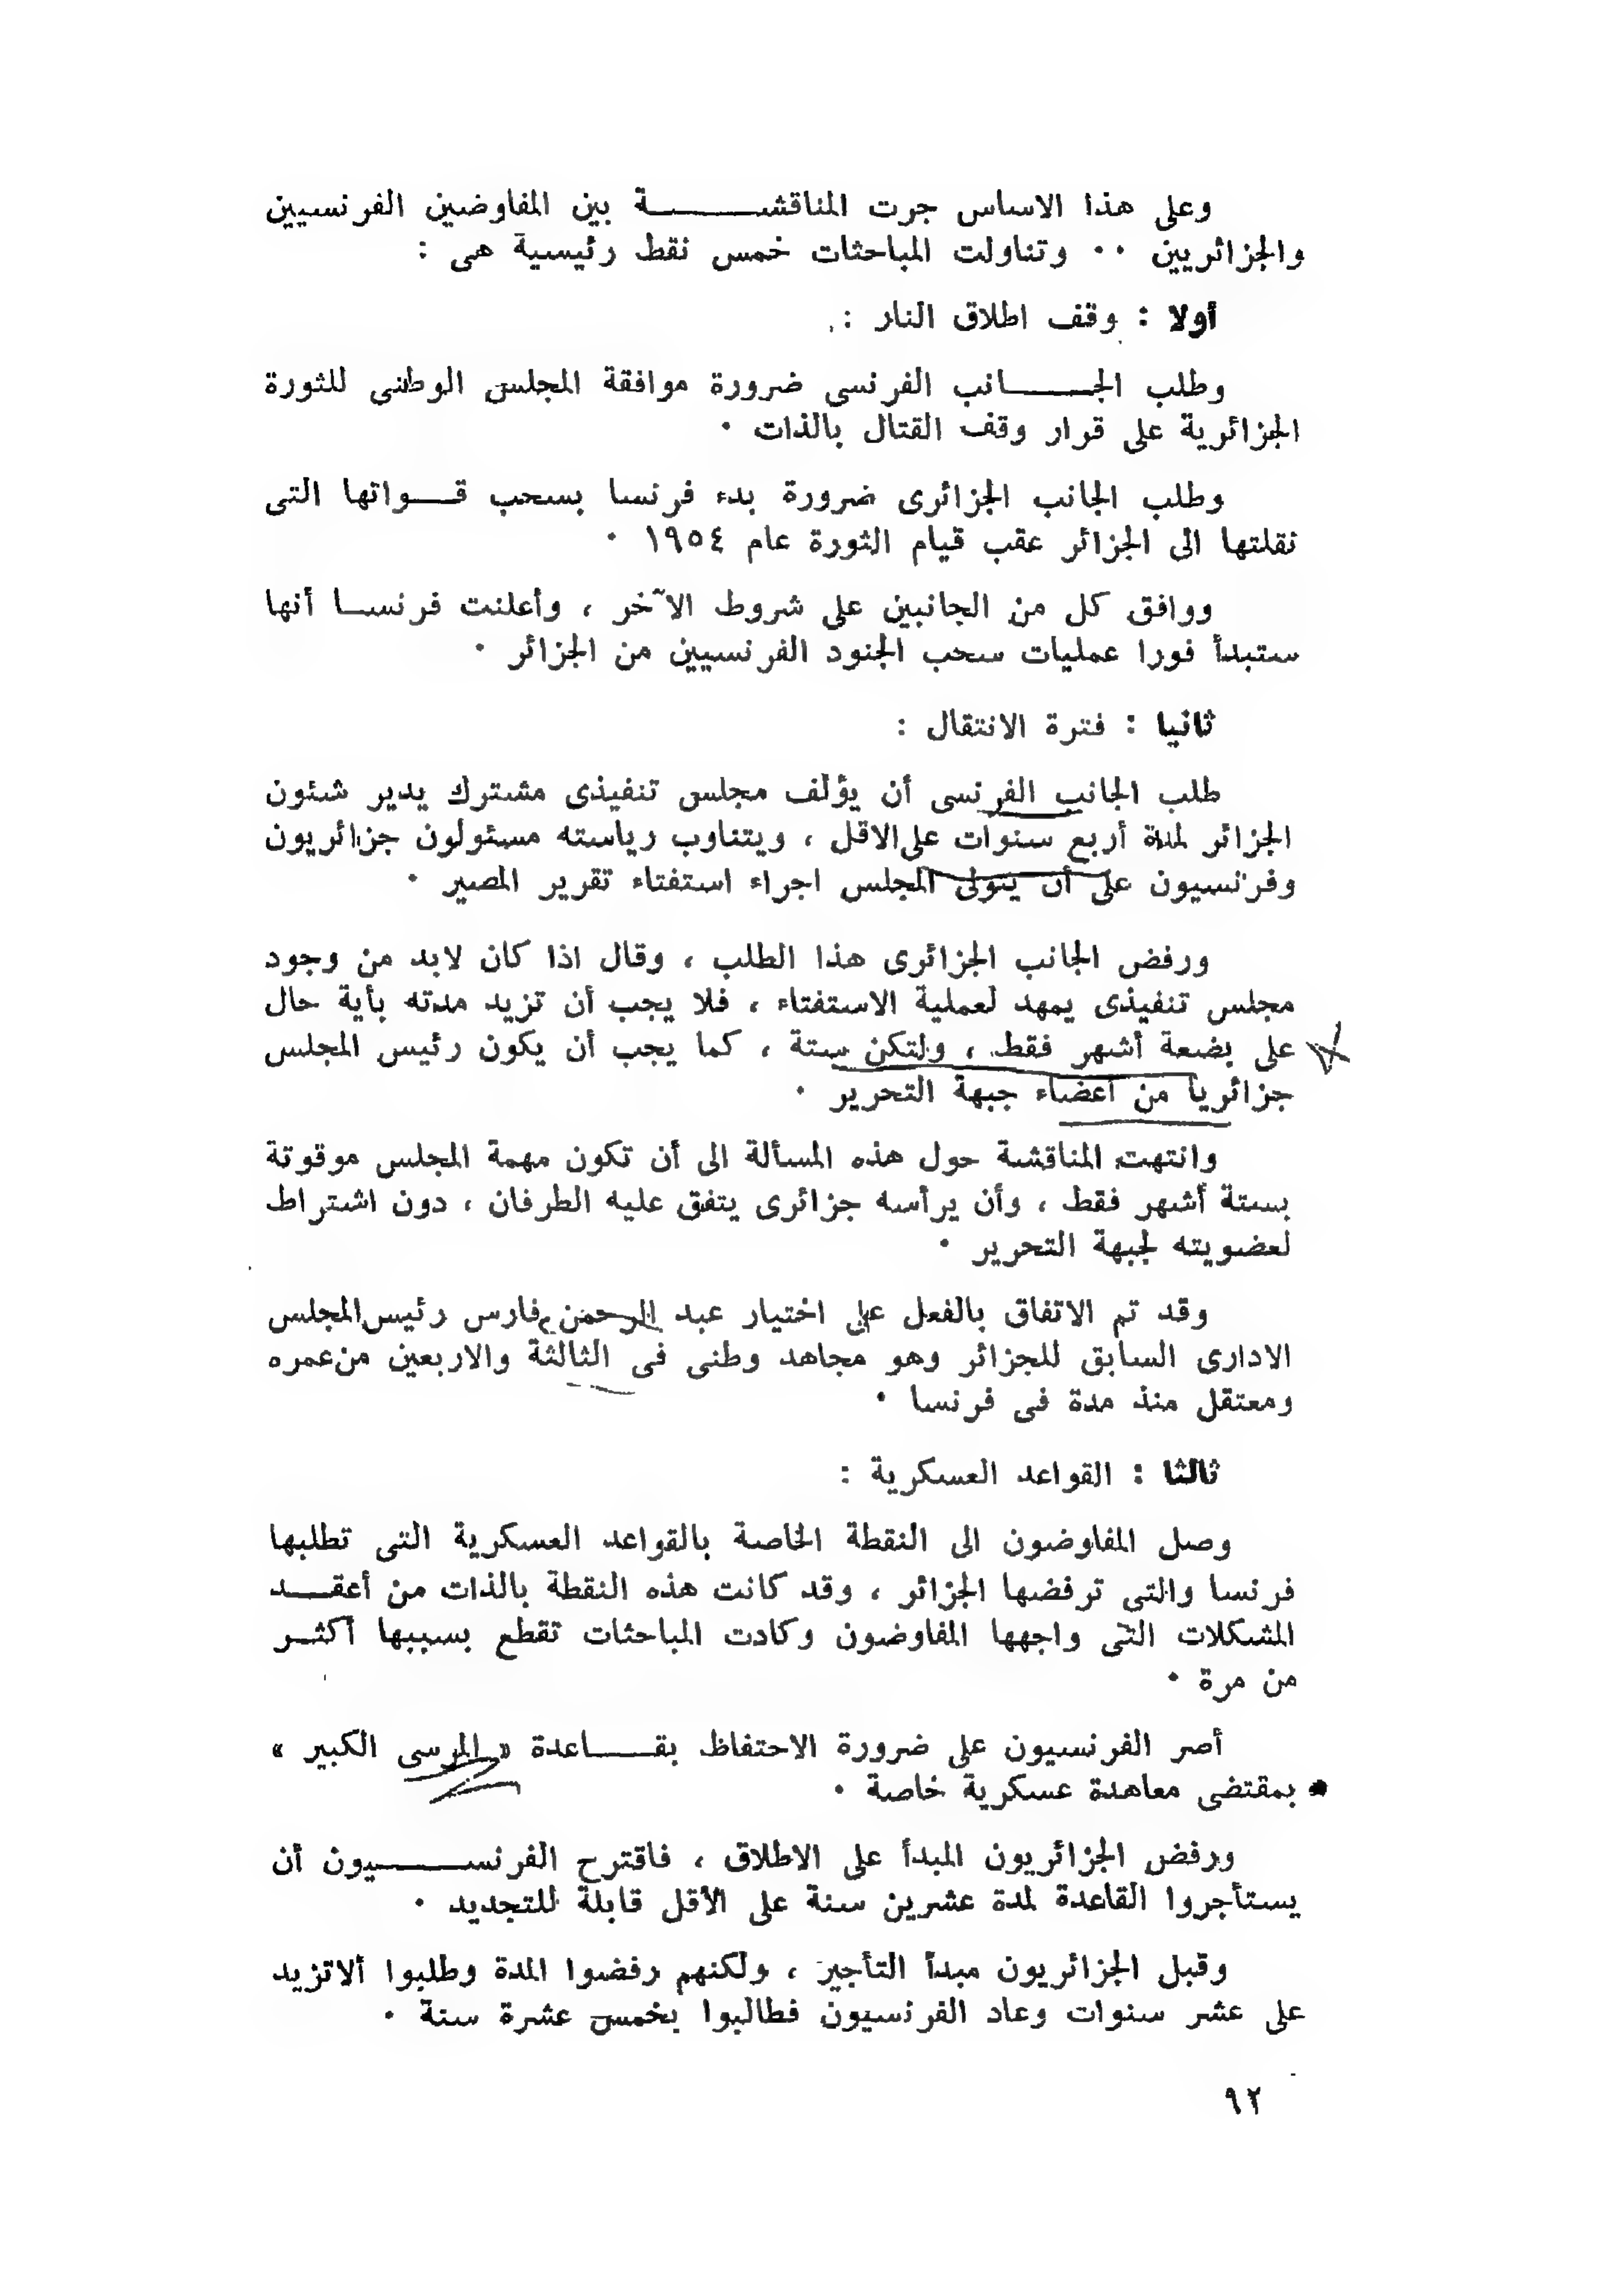 وعلى هذا الاساس جرت المناقشة بين المفاوضين الفرنسيين
والجزائريين ٠٠ وتناولت المباحثات خمس نقط رئيسية هى :
أولا : وقف اطلاق النار :
وطلب الجانب الفرنسى ضرورة موافقة المجلس الوطنى للثورة
الجزائرية على قرار وقف القتال بالذات ٠
وطلب الجانب الجزائرى ضرورة بدء فرنسا بسحب قواتها التى
نقلتها الى الجزائر عقب قيام الثورة عام ١٩٥٤ ٠
ووافق كل من الجانبين على شروط الآخر ، وأعلنت فرنسا أنها
ستبدأ فورا عمليات سحب الجنود الفرنسيين من الجزائر ٠
ثانيا : فترة الانتقال :
طلب الجانب الفرنسى أن يؤلف مجلس تنفيذى مشترك يدير شئون
الجزائر لمدة أربع سنوات على الاقل ، ويتناوب رياسته مسئولون جزائريون
وفرنسيون على أن يتولى المجلس اجراء استفتاء تقرير المصير ٠
ورفض الجانب الجزائرى هذا الطلب ، وقال اذا كان لابد من وجود
مجلس تنفيذى يمهد لعملية الاستفتاء ، فلا يجب أن تزيد مدته بأية حال
على بضعة أشهر فقط ، ولتكن ستة ، كما يجب أن يكون رئيس المجلس
جزائريا من أعضاء جبهة التحرير ٠
وانتهت المناقشة حول هذه المسألة الى أن تكون مهمة المجلس موقوتة
بستة أشهر فقط ، وأن يرأسه جزائرى يتفق عليه الطرفان ، دون اشتراط
لعضويته لجبهة التحرير ٠
وقد تم الاتفاق بالفعل على اختيار عبد الرحمن فارس رئيس المجلس
الادارى السابق للجزائر وهو مجاهد وطنى فى الثالثة والاربعين من عمره
ومعتقل منذ مدة فى فرنسا ٠
ثالثا : القواعد العسكرية :
وصل المفاوضون الى النقطة الخاصة بالقواعد العسكرية التى تطلبها
فرنسا والتى ترفضها الجزائر ، وقد كانت هذه النقطة بالذات من أعقد
المشكلات التى واجهها المفاوضون وكادت المباحثات تقطع بسببها أكثر
من مرة ٠
أصر الفرنسيون على ضرورة الاحتفاظ بقاعدة « المرسى الكبير »
بمقتضى معاهدة عسكرية خاصة ٠
ورفض الجزائريون المبدأ على الاطلاق ، فاقترح الفرنسيون أن
يستأجروا القاعدة لمدة عشرين سنة على الأقل قابلة للتجديد ٠
وقبل الجزائريون مبدأ التأجير ، ولكنهم رفضوا المدة وطلبوا ألا تزيد
على عشر سنوات وعاد الفرنسيون فطالبوا بخمس عشرة سنة ٠
٩٢